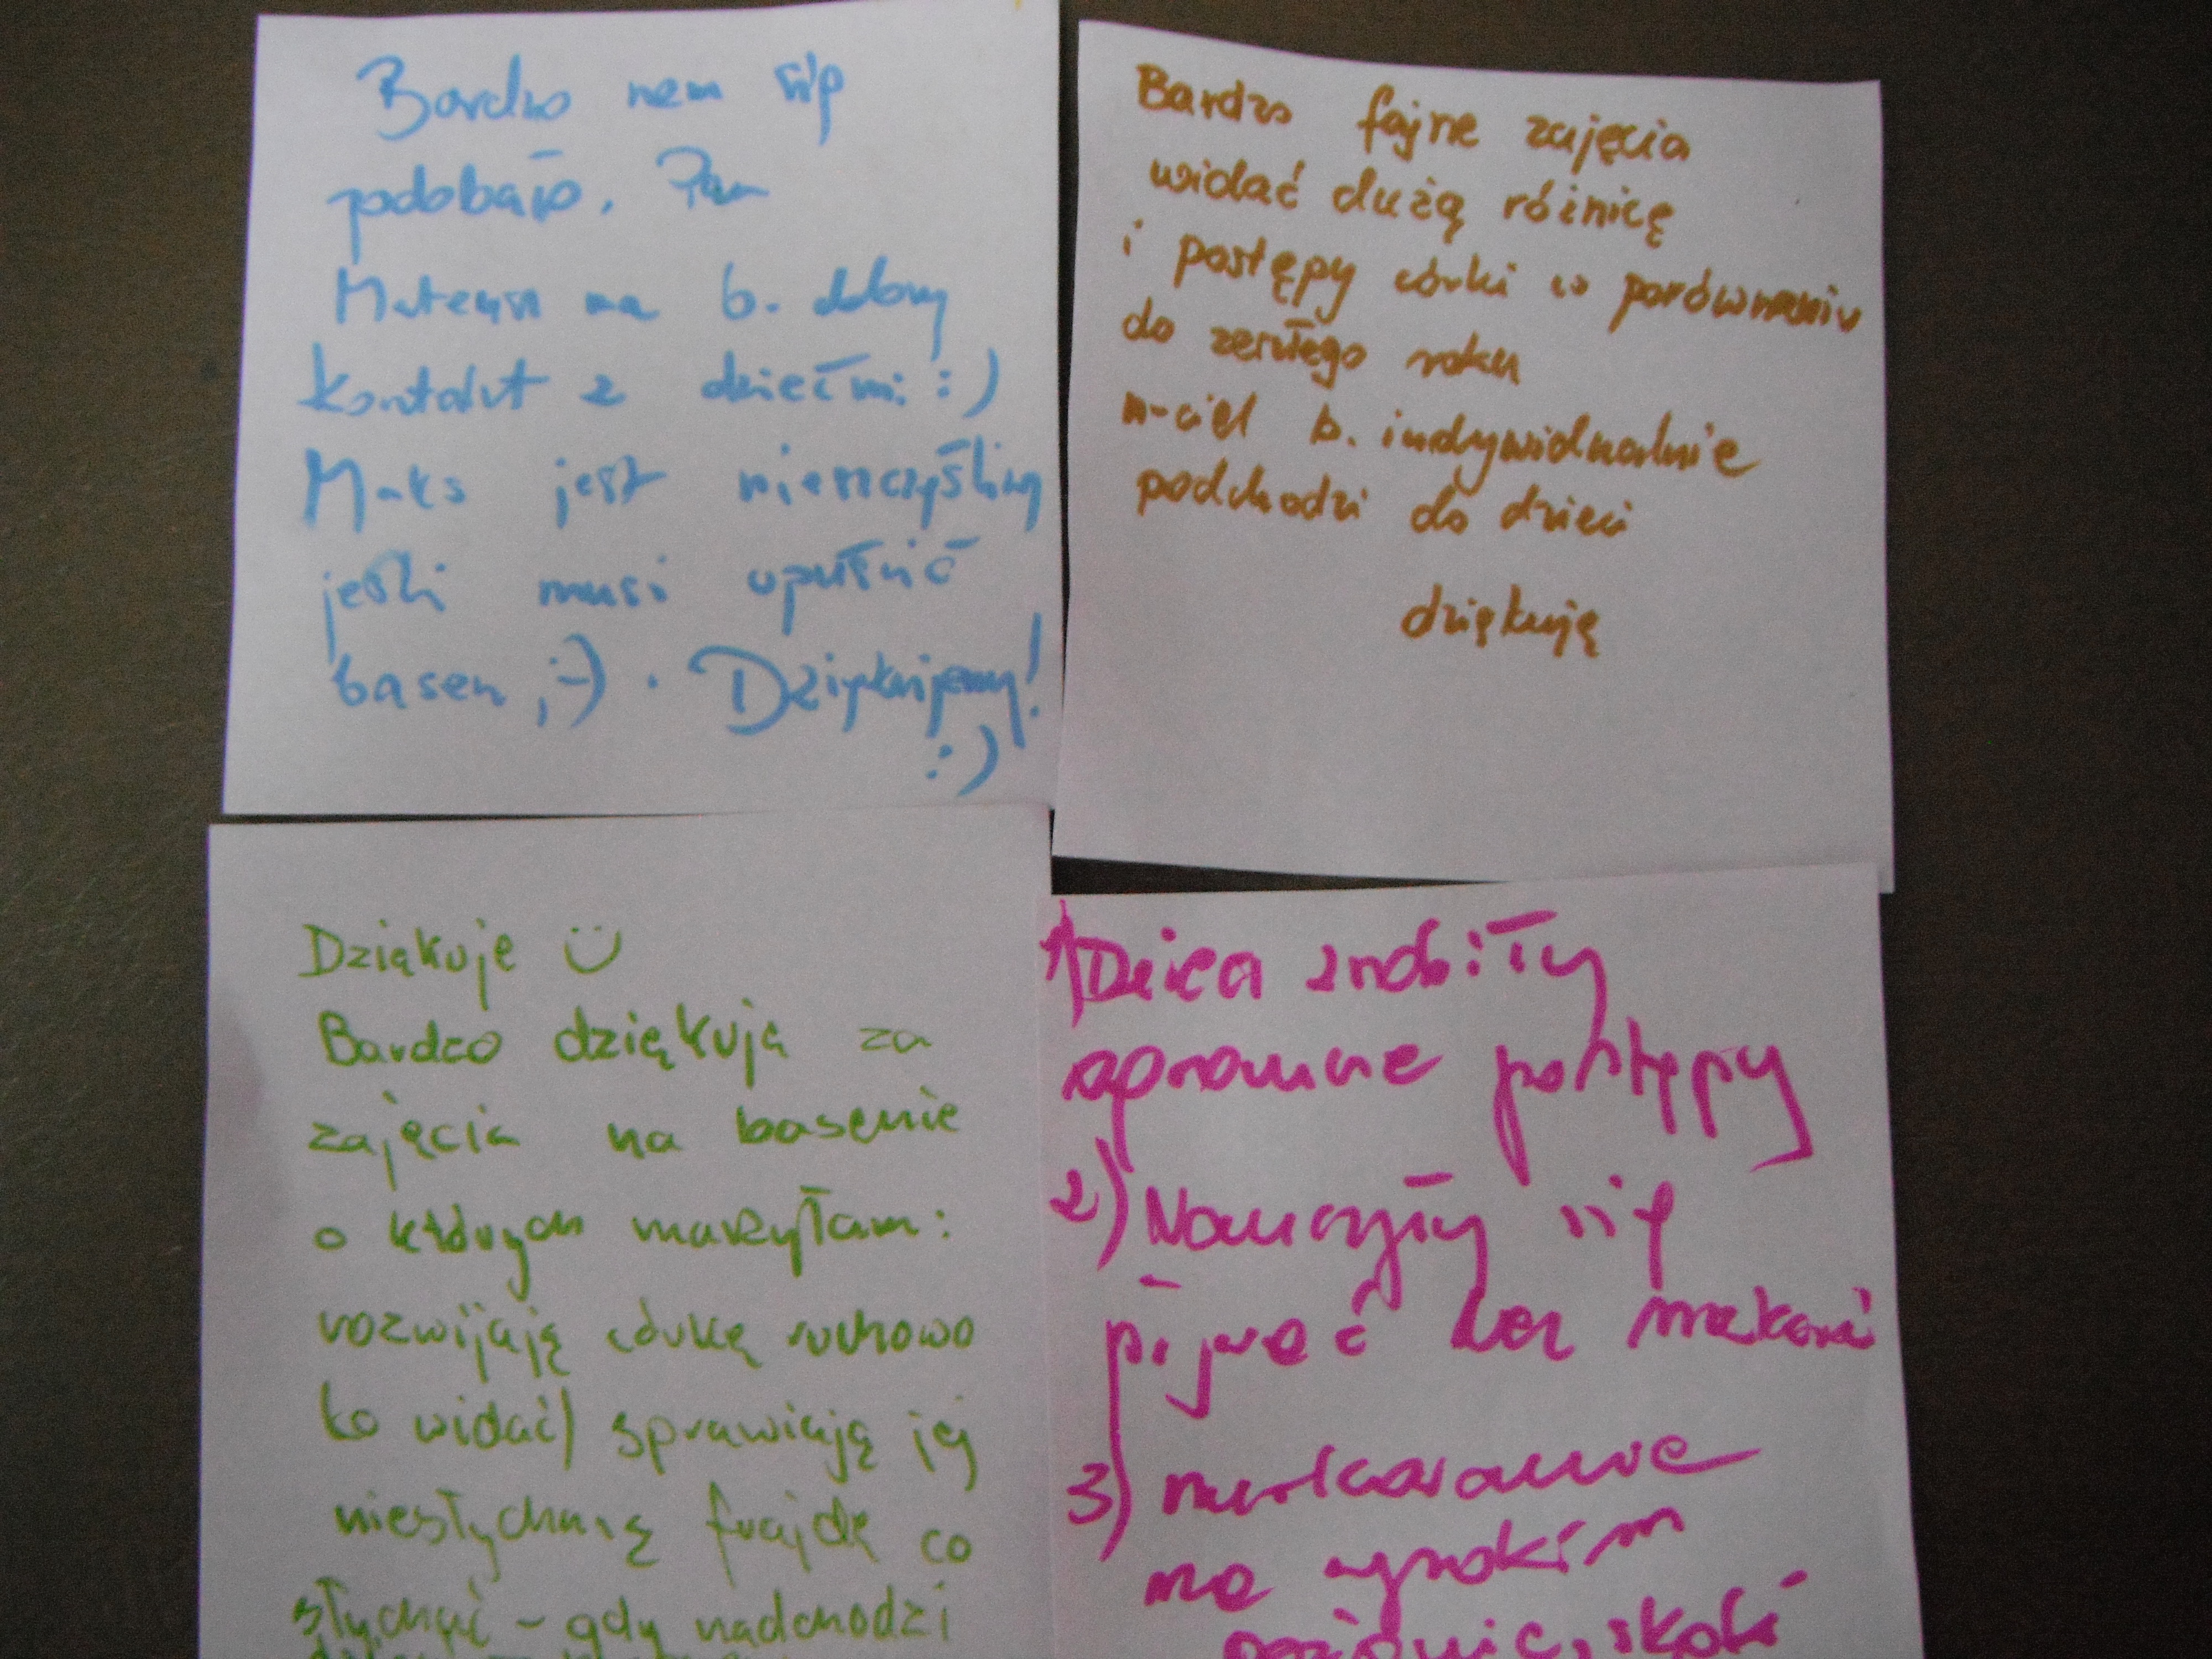 Bardzo nam się
podobało. Pan
Mateusz ma b. dobry
kontakt z dziećmi :)
Maks jest nieszczęśliwy
jeśli musi opuścić
basen ;-). Dziękujemy!
:)
Bardzo fajne zajęcia
widać dużą różnicę
i postępy córki w porównaniu
do zeszłego roku
n-ciel b. indywidualnie
podchodzi do dzieci
dziękuję
Dziąkuje
Bardzo dziąkują za
zajęcia na basenie
o których marzyłam:
rozwijają córkę ruchowo
to widać) sprawiają jej
niesłychaną frajdę co
słychać - gdy nadchodzi
1) Dzieci zrobiły
ogromne postępy
2) Nauczyły się
pływać bez
3) nurkowanie
na wysokim
poziomie, skoki